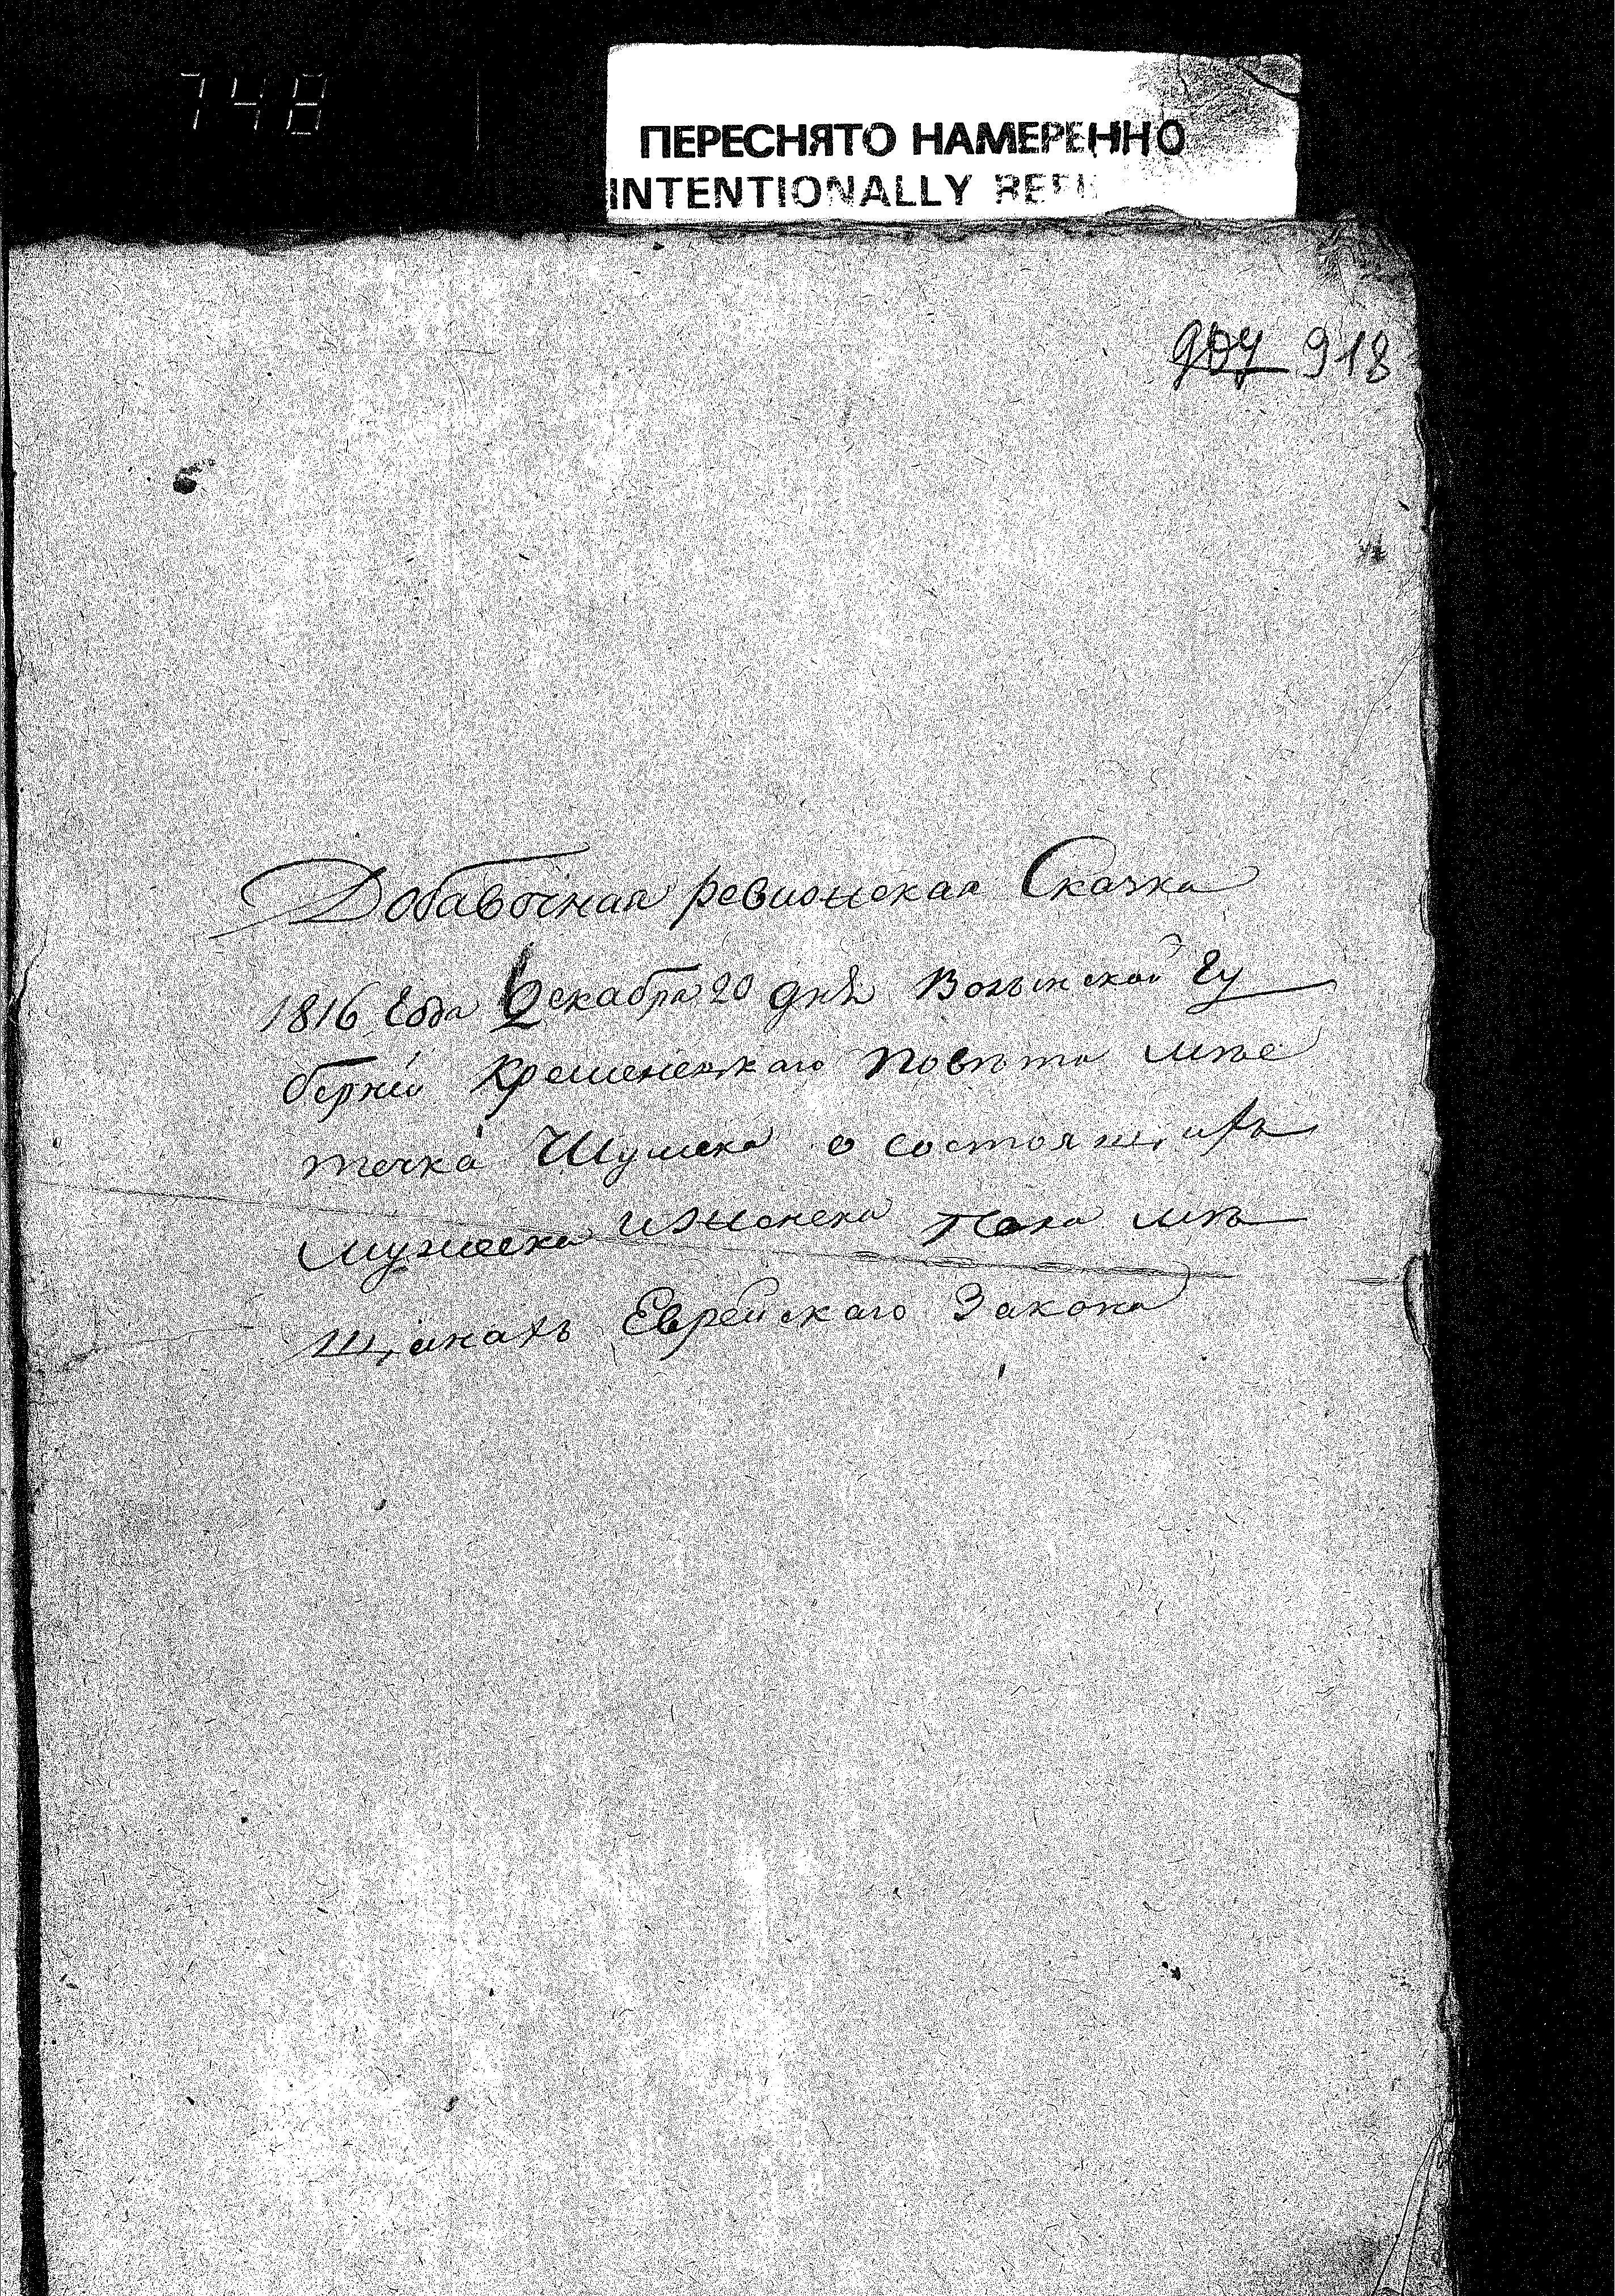 748
ПЕРЕСНЯТО НАМЕРЕННО
INTENTIONALLY
907 918
Добавочная ревионская Сказка
1816 Года Декабря 20 дня Волынской Гу
берніи Кременецкаго Повѣта мѣс
течка Шумска о состоящихъ
мужеска иженска пола мѣ
щанахъ Еврейскаго Закона